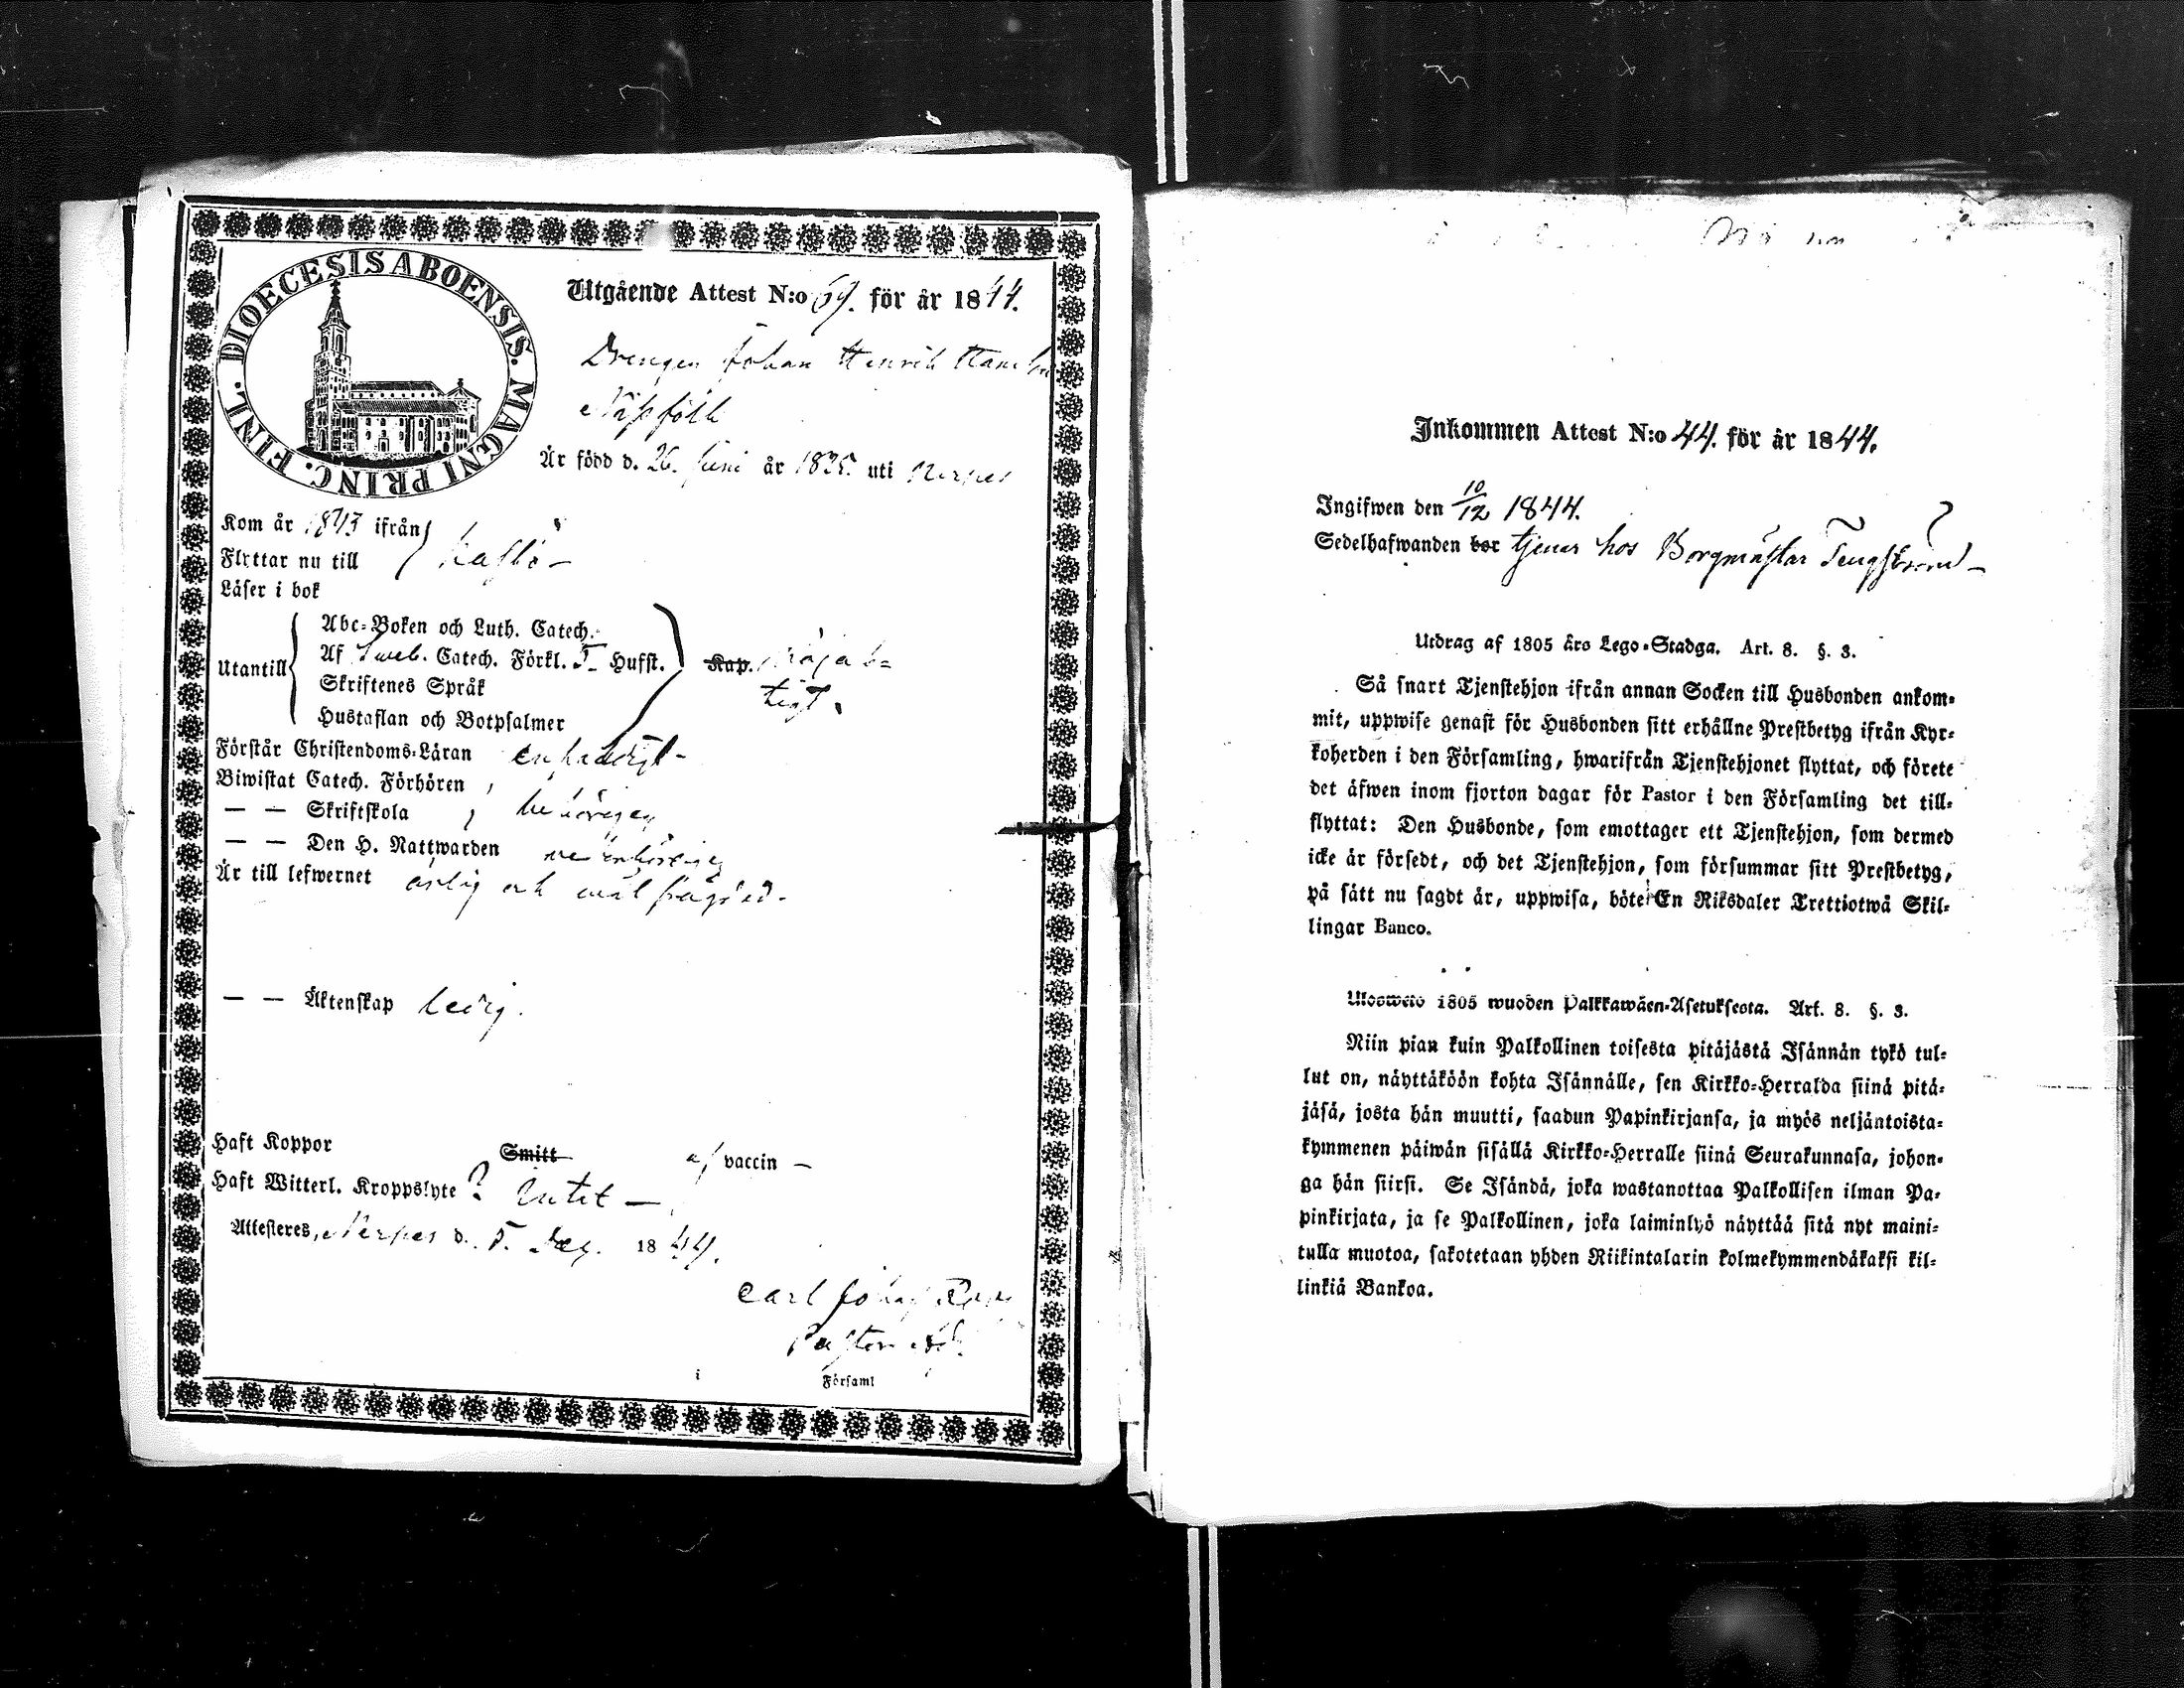 DIOECESIS ABOENSIS. MAGNI PRINC. FINL.
Utgående Attest N:o 69. för år 1844.
Drengen Johan Henrik
Är född d. 26. Juni år 1825. uti Nerpes
Kom år 1843 ifrån
Flyttar nu till Kaskö
Läser i bok
Utantill
Abc-Boken och Luth. Catech.
Af Sweb. Catech. Förkl. 5 Hufst. Kap. någorlunda
Skriftenes Språk
Hustaflan och Botpsalmer
Förstår Christendoms-Läran enfaldigt
Biwistat Catech. Förhören
— — Skriftskola behörigen
— — Den H. Nattwarden
Är till lefwernet ärlig och wälfrägdad.
— — Äktenskap ledig.
Haft Koppor Smitt af vaccin —
Haft Witterl. Kroppslyte? Intet —
Attesteras, Nerpes d. 5. Dec. 1844.
Carl Johan
Pastor
i Församl
Inkommen Attest N:o 44. för år 1844.
Ingifwen den 10/12 1844.
Sedelhafwanden bor tjenar hos Borgmästar Tengström
Utdrag af 1805 års Lego-Stadga. Art. 8. §. 3.
Så snart Tjenstehjon ifrån annan Socken till Husbonden ankom-
mit, uppwise genast för Husbonden sitt erhållne Prestbetyg ifrån Kyr-
koherden i den Församling, hwarifrån Tjenstehjonet flyttat, och förete
det äfwen inom fjorton dagar för Pastor i den Församling det till-
flyttat: Den Husbonde, som emottager ett Tjenstehjon, som dermed
icke är försedt, och det Tjenstehjon, som försummar sitt Prestbetyg,
på sätt nu sagdt är, uppwisa, böte En Riksdaler Trettiotwå Skil-
lingar Banco.
Ulosweto 1805 wuoden Palkkawäen-Asetuksesta. Art. 8. §. 3.
Niin pian kuin Palkollinen toisesta pitäjästä Isännän tykö tul-
lut on, näyttäköön kohta Isännälle, sen Kirkko-Herralda siinä pitä-
jäsä, josta hän muutti, saadun Papinkirjansa, ja myös neljäntoista-
kymmenen päiwän sisällä Kirkko-Herralle siinä Seurakunnasa, johon-
ga hän siirsi. Se Isändä, joka wastanottaa Palkollisen ilman Pa-
pinkirjata, ja se Palkollinen, joka laiminlyö näyttää sitä nyt maini-
tulla muotoa, sakotetaan yhden Riikintalarin kolmekymmendäkaksi kil-
linkiä Bankoa.